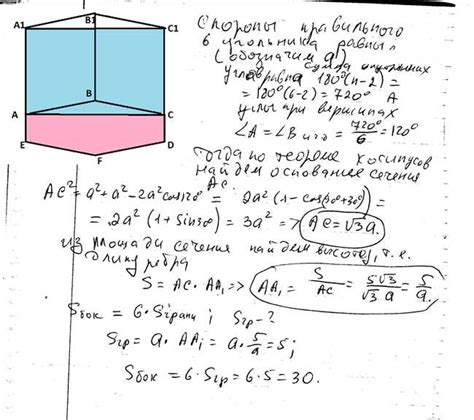 A1
B1
C1
B
A
C
E
D
F
Стороны правильного
6 угольника равны,
(обозначим a)
сумма
углов равна 180°(n-2) =
= 180°(6-2) = 720°
A
углы при вершинах
∠A = ∠B и т.д = 720°/6 = 120°
Тогда по теореме косинусов
найдем основание сечения
AC.
AC² = a² + a² - 2a² cos 120° = 2a² (1 - cos(90°+30°)) =
= 2a² (1 + sin 30°) = 3a² => AC = √3 a.
из площади сечения найдем высоту, т.е.
длину ребра
S = AC · AA₁ => AA₁ = S/AC = 5√3/√3 a = 5/a.
Sбок = 6 · Sграни ; Sгр - ?
Sгр = a · AA₁ = a · 5/a = 5;
Sбок = 6 · Sгр = 6 · 5 = 30.